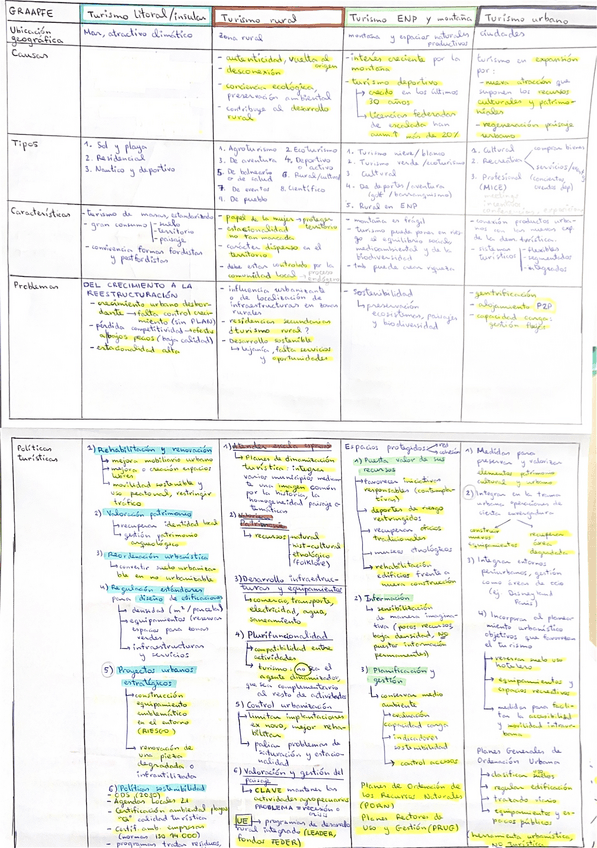 GRAAPFE
Turismo litoral/insular
Turismo rural
Turismo ENP y montaña
Turismo urbano
Ubicación geográfica
Mar, atractivo climático
zona rural
montaña y espacios naturales
productivos
ciudades
Causas
- autenticidad, vuelta al origen
- desconexión
- conciencia ecológica,
preservación ambiental
- contribuye al desarrollo
rural
- interés creciente por la
montaña
- turismo deportivo
↳ creado en los últimos
30 años
↳ licencias federadas
de escalada han
más de 20%
turismo en expansión
por:
- nueva atracción que
suponen los recursos
culturales y patrimo-
niales
- regeneración paisaje
urbano
Tipos
1. Sol y playa
2. Residencial
3. Náutico y deportivo
1. Agroturismo 2. Ecoturismo
3. De aventura 4. Deportivo
o activo
5. De balneario
o de salud
6. Rural/cultural
7. De eventos 8. Científico
9. De pueblo
1. Turismo nieve/blanco
2. Turismo verde/ecoturismo
3. Cultural
4. De deportes/aventura
5. Rural en ENP
1. Cultural
2. Recreativo
3. Profesional
(MICE)
Características
- turismo de masas, estandarizado
- gran consumo
- suelo
- territorio
- paisaje
- convivencia formas fordistas
y postfordistas
- papel de la mujer → proteger
territorio
- estacionalidad
no tan marcada
- carácter disperso en el
territorio
- debe estar controlado por la
comunidad local
- montaña es frágil
- turismo puede poner en ries-
go el equilibrio
medioambiental y de la
biodiversidad
- conexión productos urba-
nos con las nuevas
de la dem. turística
- flexibles
- segmentados
- integrados
Problemas
DEL CRECIMIENTO A LA
REESTRUCTURACIÓN
- crecimiento urbano desbor-
dante → falta control creci-
miento (sin PLAN)
- pérdida competitividad → oferta
a bajos precios (baja calidad)
- estacionalidad alta
- influencia urbanizante
o de localización de
infraestructuras en zonas
rurales
- residencias secundarias
¿turismo rural?
- Desarrollo sostenible
↳ lejanía, falta servicios
y oportunidades
- Sostenibilidad
↳ preservación
ecosistemas, paisajes
y biodiversidad
- gentrificación
- alojamiento P2P
- capacidad carga,
gestión flujos
Políticas
turísticas
1) Rehabilitación y renovación
↳ mejora mobiliario urbano
↳ mejora o creación espacios
libres
↳ movilidad sostenible y
uso peatonal, restringir
tráfico
2) Valorización patrimonio
↳ recuperan identidad local
↳ gestión patrimonio
arqueológico
3) Reordenación urbanística
↳ convertir suelo urbaniza-
ble en no urbanizable
4) Regulación estándares
para diseño de edificaciones
↳ densidad (m²/parcela)
↳ equipamientos (reservar
espacio para zonas
verdes
↳ infraestructuras
y servicios
5) Proyectos urbanos
estratégicos
↳ construcción
equipamiento
emblemático
en el entorno
(RIESGO)
↳ renovación de
una pieza
degradada o
infrautilizada
6) Políticas sostenibilidad
- ODS (2030)
- Agendas Locales 21
- Certificación ambiental playas
"Q" calidad turística
- Certif. amb. empresas
(normas ISO 14 000)
- programas tratar residuos,
1) Atender escala espacio
↳ Planes de dinamización
turística: integrar
varios municipios median-
te una imagen común
por la historia, la
homogeneidad paisaje o
temática
2) Valorizar
Patrimonio
↳ recursos
natural
hist-cultural
etnológico
(folklore)
3) Desarrollo infraestruc-
turas y equipamientos
↳ comercio, transporte,
electricidad, agua,
saneamiento
4) Plurifuncionalidad
↳ compatibilidad entre
actividades
↳ turismo no sea el
agente dinamizador,
que sea complementario
al resto de actividades
5) Control urbanización
↳ limitar implantaciones
ex novo, mejor reha-
bilitar
↳ paliar problemas de
saturación y estacio-
nalidad
6) Valoración y gestión del
paisaje
↳ CLAVE mantener las
actividades agropecuarias
UE → programas de desarrollo
rural integrado (LEADER,
fondos FEDER)
Espacios protegidos
1) Puesta valor de sus
recursos
↳ favorecer iniciativas
responsables (contempla-
tivas)
↳ deportes de riesgo
restringidos
↳ recuperan oficios
tradicionales
↳ museos etnológicos
↳ rehabilitación
edificios frente a
construcción
2) Información
↳ sensibilización
de manera imagina-
tiva (pocos recursos,
baja densidad, no
puestos información
permanentes)
3) Planificación y
gestión
↳ conservar medio
ambiente
↳ evaluación
capacidad carga
↳ indicadores
sostenibilidad
↳ control accesos
Planes de Ordenación de
los Recursos Naturales
(PORN)
Planes Rectores de
Uso y Gestión (PRUG)
1) Medidas para
preservar y valorizar
elementos patrimonio
cultural y urbano
2) Integrar en la trama
urbana operaciones de
construir
nuevos
equipamientos
recuperan
área
degradada
3) Integrar entornos
periurbanos, gestión
como áreas de ocio
(ej Disneyland
París)
4) Incorporar al planea-
miento urbanístico
objetivos que favorezcan
el turismo
↳ reservan suelo uso
hotelero
↳ equipamientos y
espacios recreativos
↳ medidas para facili-
tar la accesibilidad
y movilidad intraur-
bana
Planes Generales de
Ordenación Urbana
↳ clasifican suelos
↳ regulan edificación
↳ trazado viario
↳ equipamientos y es-
pacios públicos
herramienta urbanística,
NO Turística